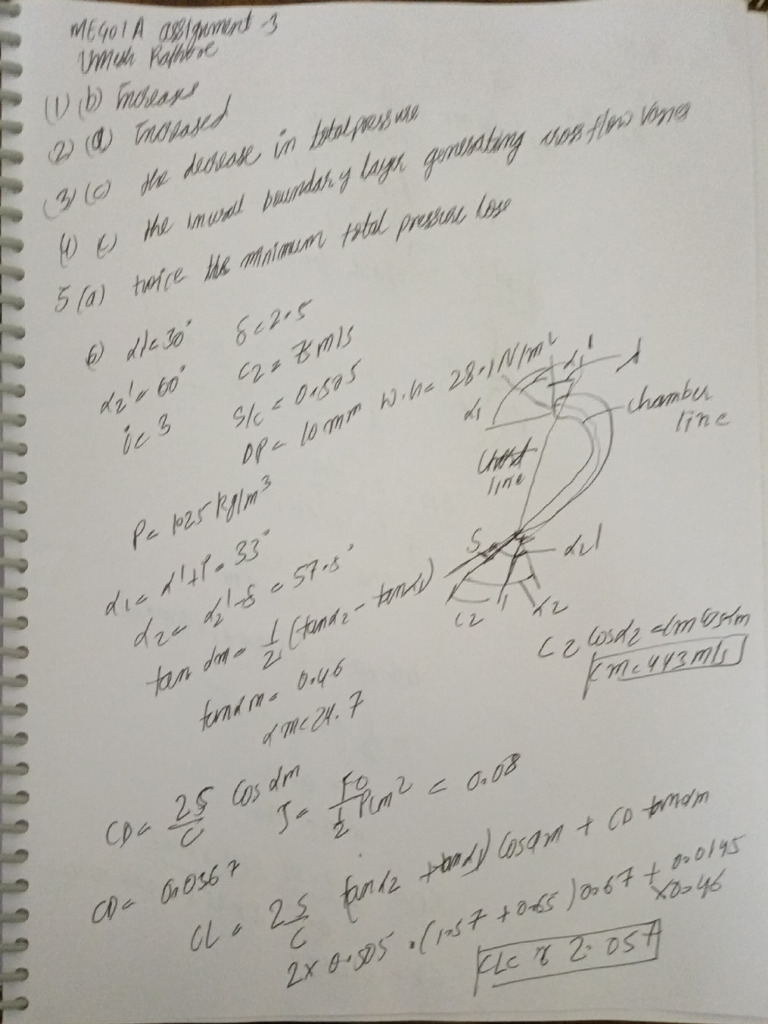 ME401A assignment -3
Umesh Rathore
(1) (b) Increase
2) (a) Increased
(3) (c) the decrease in total pressure
(4) c) the boundary layer generating cross flow
5 (a) twice the minimum total pressure loss
6) α1 = 30° δ = 2.5
α2' = 60° C2 = m/s
i = 3 S/C = 0.505
DP = 10 mm w.h = 28.1 N/m²
α1 α1'
chamber
line
line
ρ = 1.025 kg/m³
α1 = α' + i = 33°
α2 = α2' - δ = 57.5°
S α2'
C2 α2
tan αm = 1/2 (tan α2 - tan α1)
tan αm = 0.46
αm = 24.7
C2 cos α2 = Cm cos αm
Cm = 443 m/s
CD = 2S/C cos αm = 1/2 ρCm² = 0.08
CD = 0.0367
CL = 2S/C (tan α2 + tan α1) cos αm + CD tan αm
2 x 0.505 . (1.57 + 0.65) 0.67 + 0.0195
x 0.46
CL = 2.057